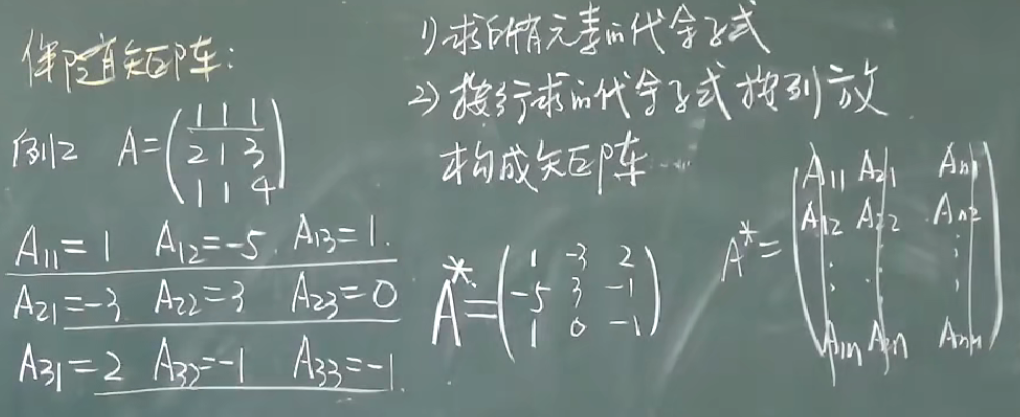 伴随矩阵:
例2 A=(1 1 1
2 1 3
1 1 4)
A11=1 A12=-5 A13=1.
A21=-3 A22=3 A23=0
A31=2 A32=-1 A33=-1.
1)求所有元素的代余子式
2)按行求的代余子式按列放
构成矩阵
A*=(1 -3 2
-5 3 -1
1 0 -1)
A*=(A11 A21 An1
A12 A22 . An2
: : :
A1n A2n Ann)